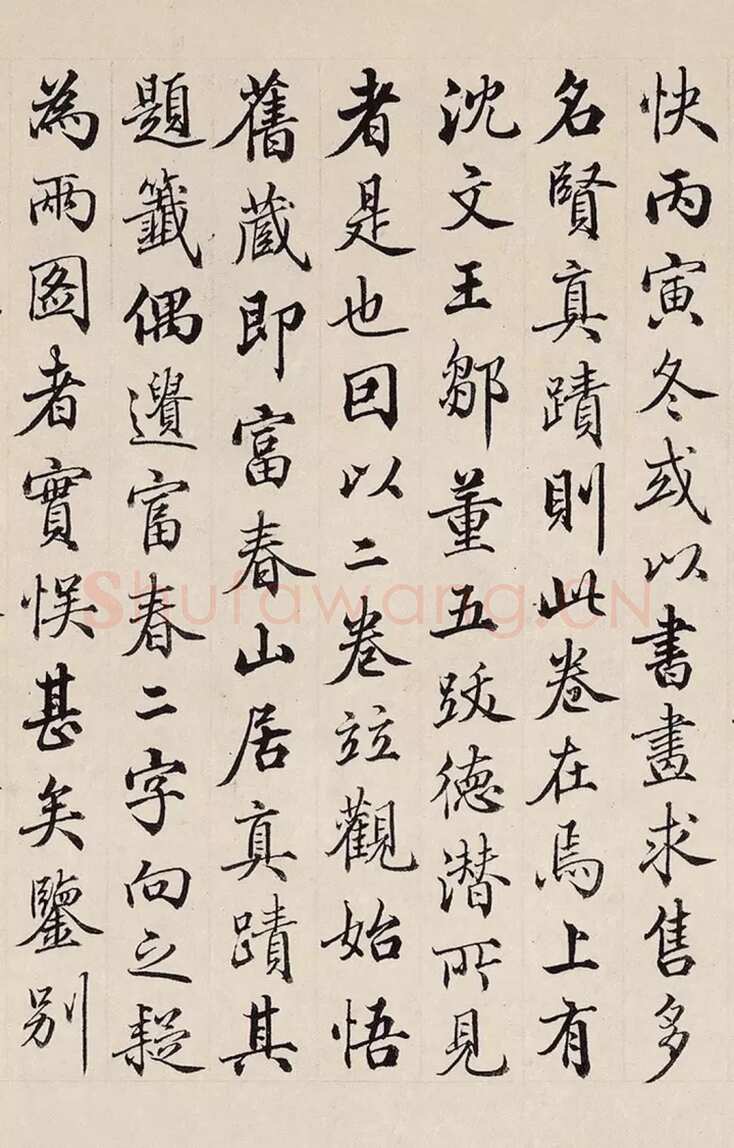 快丙寅冬或以書畫求售多
名賢真蹟則此卷在焉上有
沈文王鄒董五跋德潛所見
者是也因以二卷竝觀始悟
舊蔵即富春山居真蹟其
題籤偶遺富春二字向之疑
為兩圖者實悮甚矣鑒別
Shufawang.CN